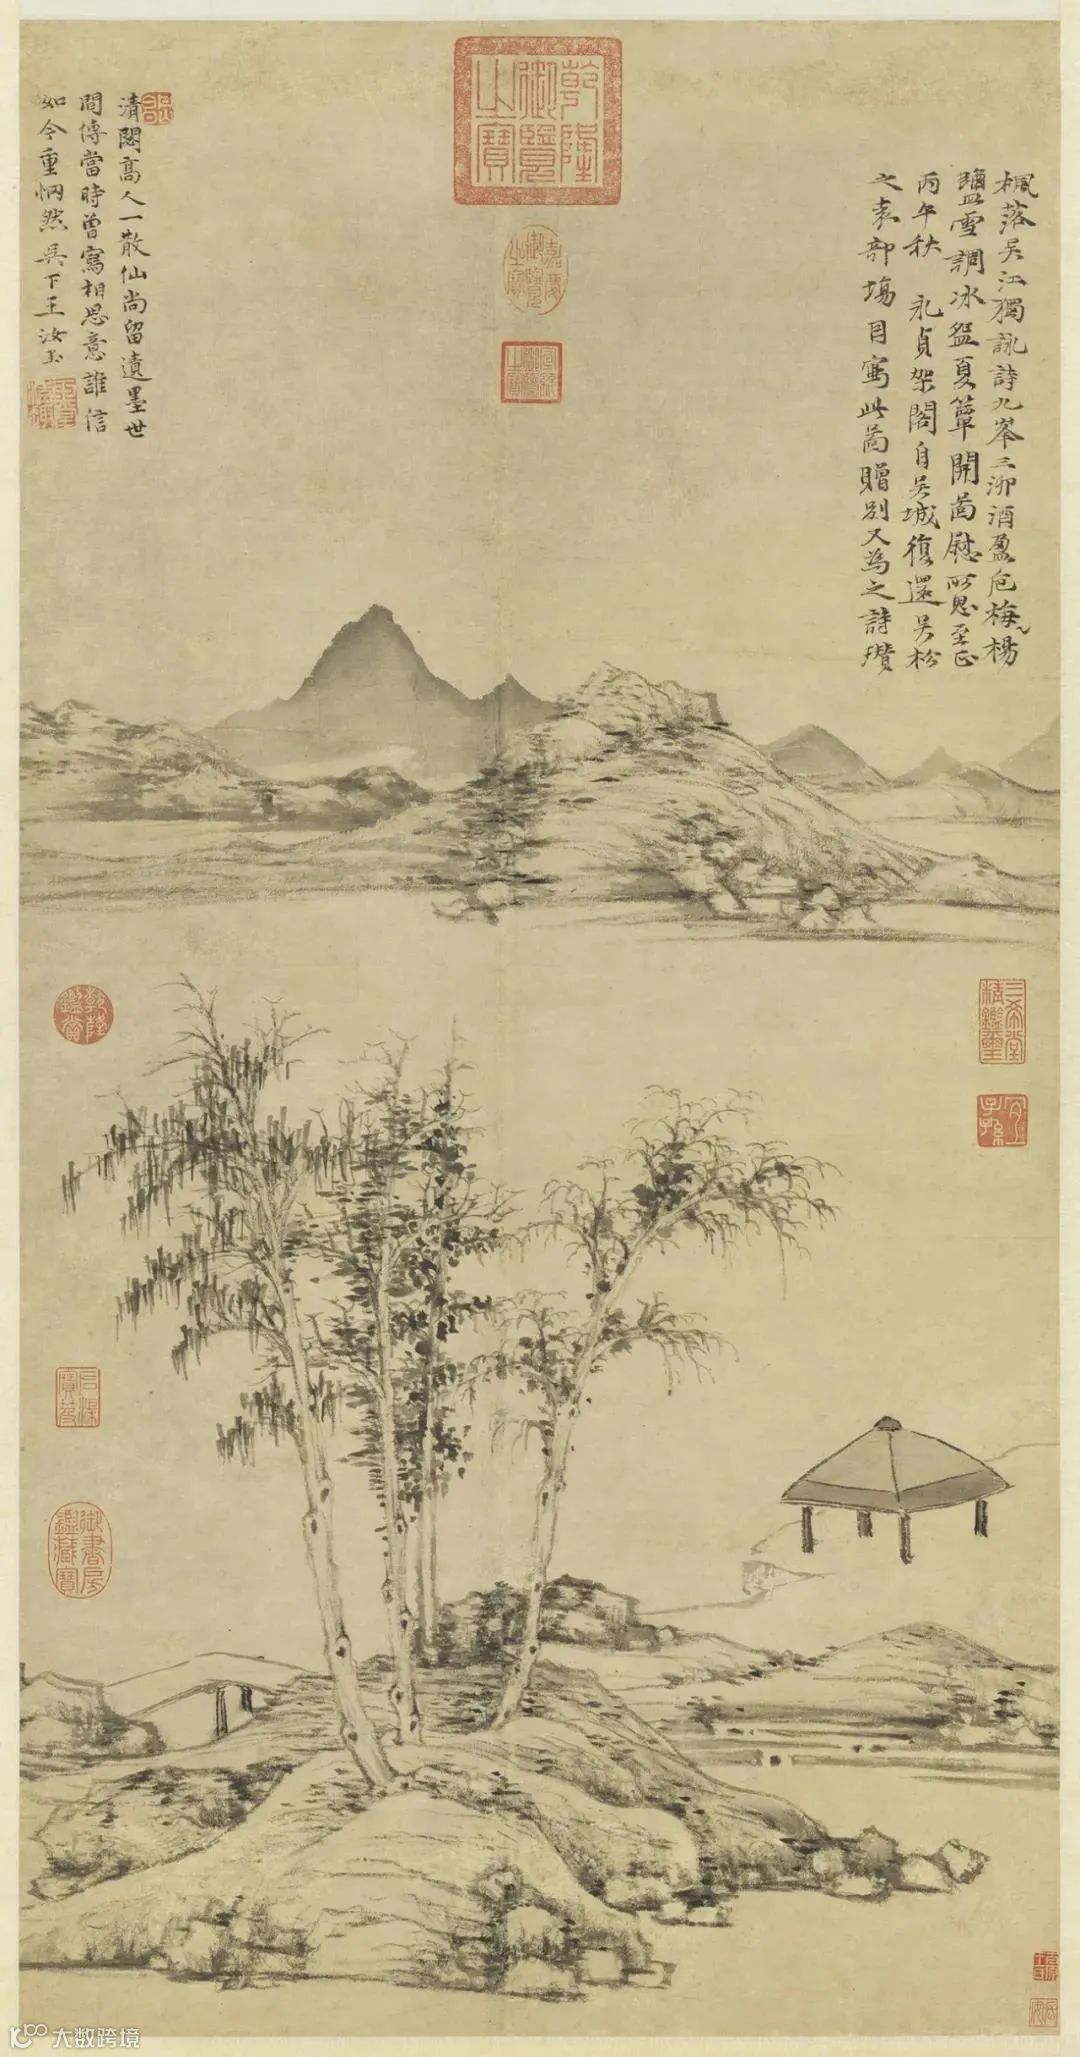 楓落吳江獨詠詩九峯三泖酒盈卮梅梅楊
鹽雪調冰盌夏簟開啚慰所思至正
丙午秋 永貞架閣自吳城復還吳松
之袁部場因寫此啚贈別又為之詩瓚
清閟高人一散仙尚留遺墨世
間傳當時曾寫相思意誰信
如今重惘然吳下王汝玉
乾隆御覽之寶
嘉慶御覽之寶
宣統御覽之寶
三希堂精鑑璽
宜子孫
乾隆鑑賞
石渠寶笈
御書房鑑藏寶
大数跨境